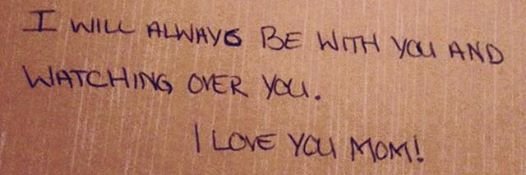 I WILL ALWAYS BE WITH YOU AND
WATCHING OVER YOU.
I LOVE YOU MOM!